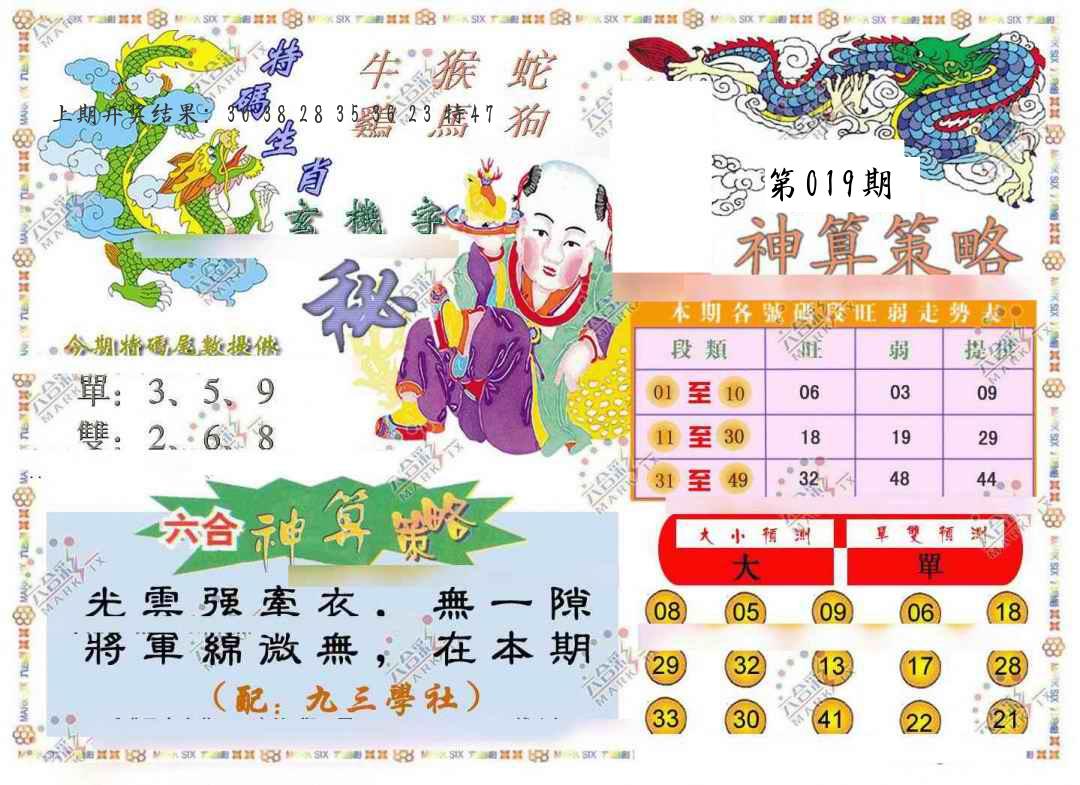 特碼生肖
牛 猴 蛇
鷄 馬 狗
上期开奖结果：30 38 28 35 36 23 特47
第019期
玄機字
神算策略
秘
本期各號碼段旺弱走勢表
段類 旺 弱 提供
01至10 06 03 09
11至30 18 19 29
31至49 32 48 44
今期特碼尾數提供
單：3、5、9
雙：2、6、8
六合神算策略
光雲强牽衣．無一隙
將軍綿微無，在本期
（配：九三學社）
大小預測 單雙預測
大 單
08 05 09 06 18
29 32 13 17 28
33 30 41 22 21